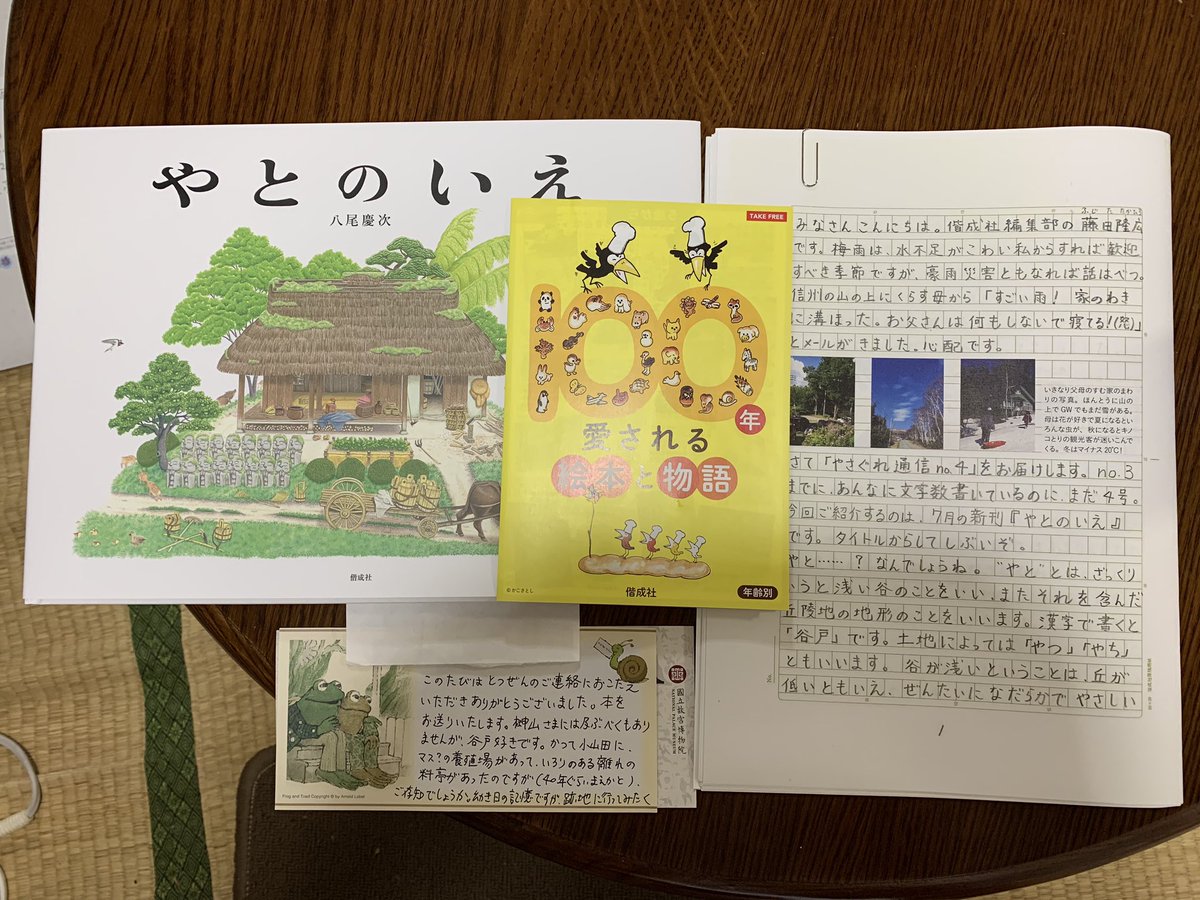 やとのいえ
八尾慶次
偕成社
TAKE FREE
100
年
愛される
絵本と物語
©かこさとし
偕成社
年齢別
ふじた たかひろ
みなさんこんにちは。偕成社編集部の藤田隆広
です。梅雨は、水不足がこわい私からすれば歓迎
すべき季節ですが、豪雨災害ともなれば話はべつ。
信州の山の上にくらす母から「すごい雨! 家のわき
に溝ほった。お父さんは何もしないで寝てる!(発)」
とメールがきました。心配です。
いきなり父母のすむ家のまわ
りの写真。ほんとうに山の
上でGWでもまだ雪がある。
母は花が好きで夏になるとい
ろんな虫が、秋になるとキノ
コとりの観光客が迷いこんで
くる。冬はマイナス20℃!
さて「やさぐれ通信no.4」をお届けします。no.3
までに、あんなに文字数書いているのに、まだ4号。
今回ご紹介するのは、7月の新刊『やとのいえ』
です。タイトルからしてしぶいぞ。
やと……? なんでしょうね。"やと"とは、ざっくり
いうと浅い谷のことをいい、またそれを含んだ
丘陵地の地形のことをいいます。漢字で書くと
「谷戸」です。土地によっては「やつ」「やち」
ともいいます。谷が浅いということは、丘が
低いともいえ、ぜんたいになだらかでやさしい
No.
1
このたびはとつぜんのご連絡におこたえ
いただきありがとうございました。本を
お送りいたします。栁山さまには及ぶべくもあり
ませんが、谷戸好きです。かつて小山田に、
マス?の養殖場があって、いろりのある離れの
料亭があったのですが(40年ぐらいまえかと)、
ご存知でしょうか。幼き日の記憶ですが、跡地に行ってみたく
Frog and Toad Copyright © by Arnold Lobel
國立故宮博物院
NATIONAL PALACE MUSEUM